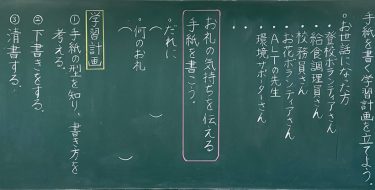 手紙を書く学習計画を立てよう。
◦お世話になった方
・登校ボランティアさん
・給食調理員さん
・校務員さん
・お花ボランティアさん
・ALTの先生
・環境サポーターさん
お礼の気持ちを伝える
手紙を書こう。
◦だれに
( )
◦何のお礼
( )
学習計画
①手紙の型を知り、書き方を
考える。
②下書きをする。
③清書する。